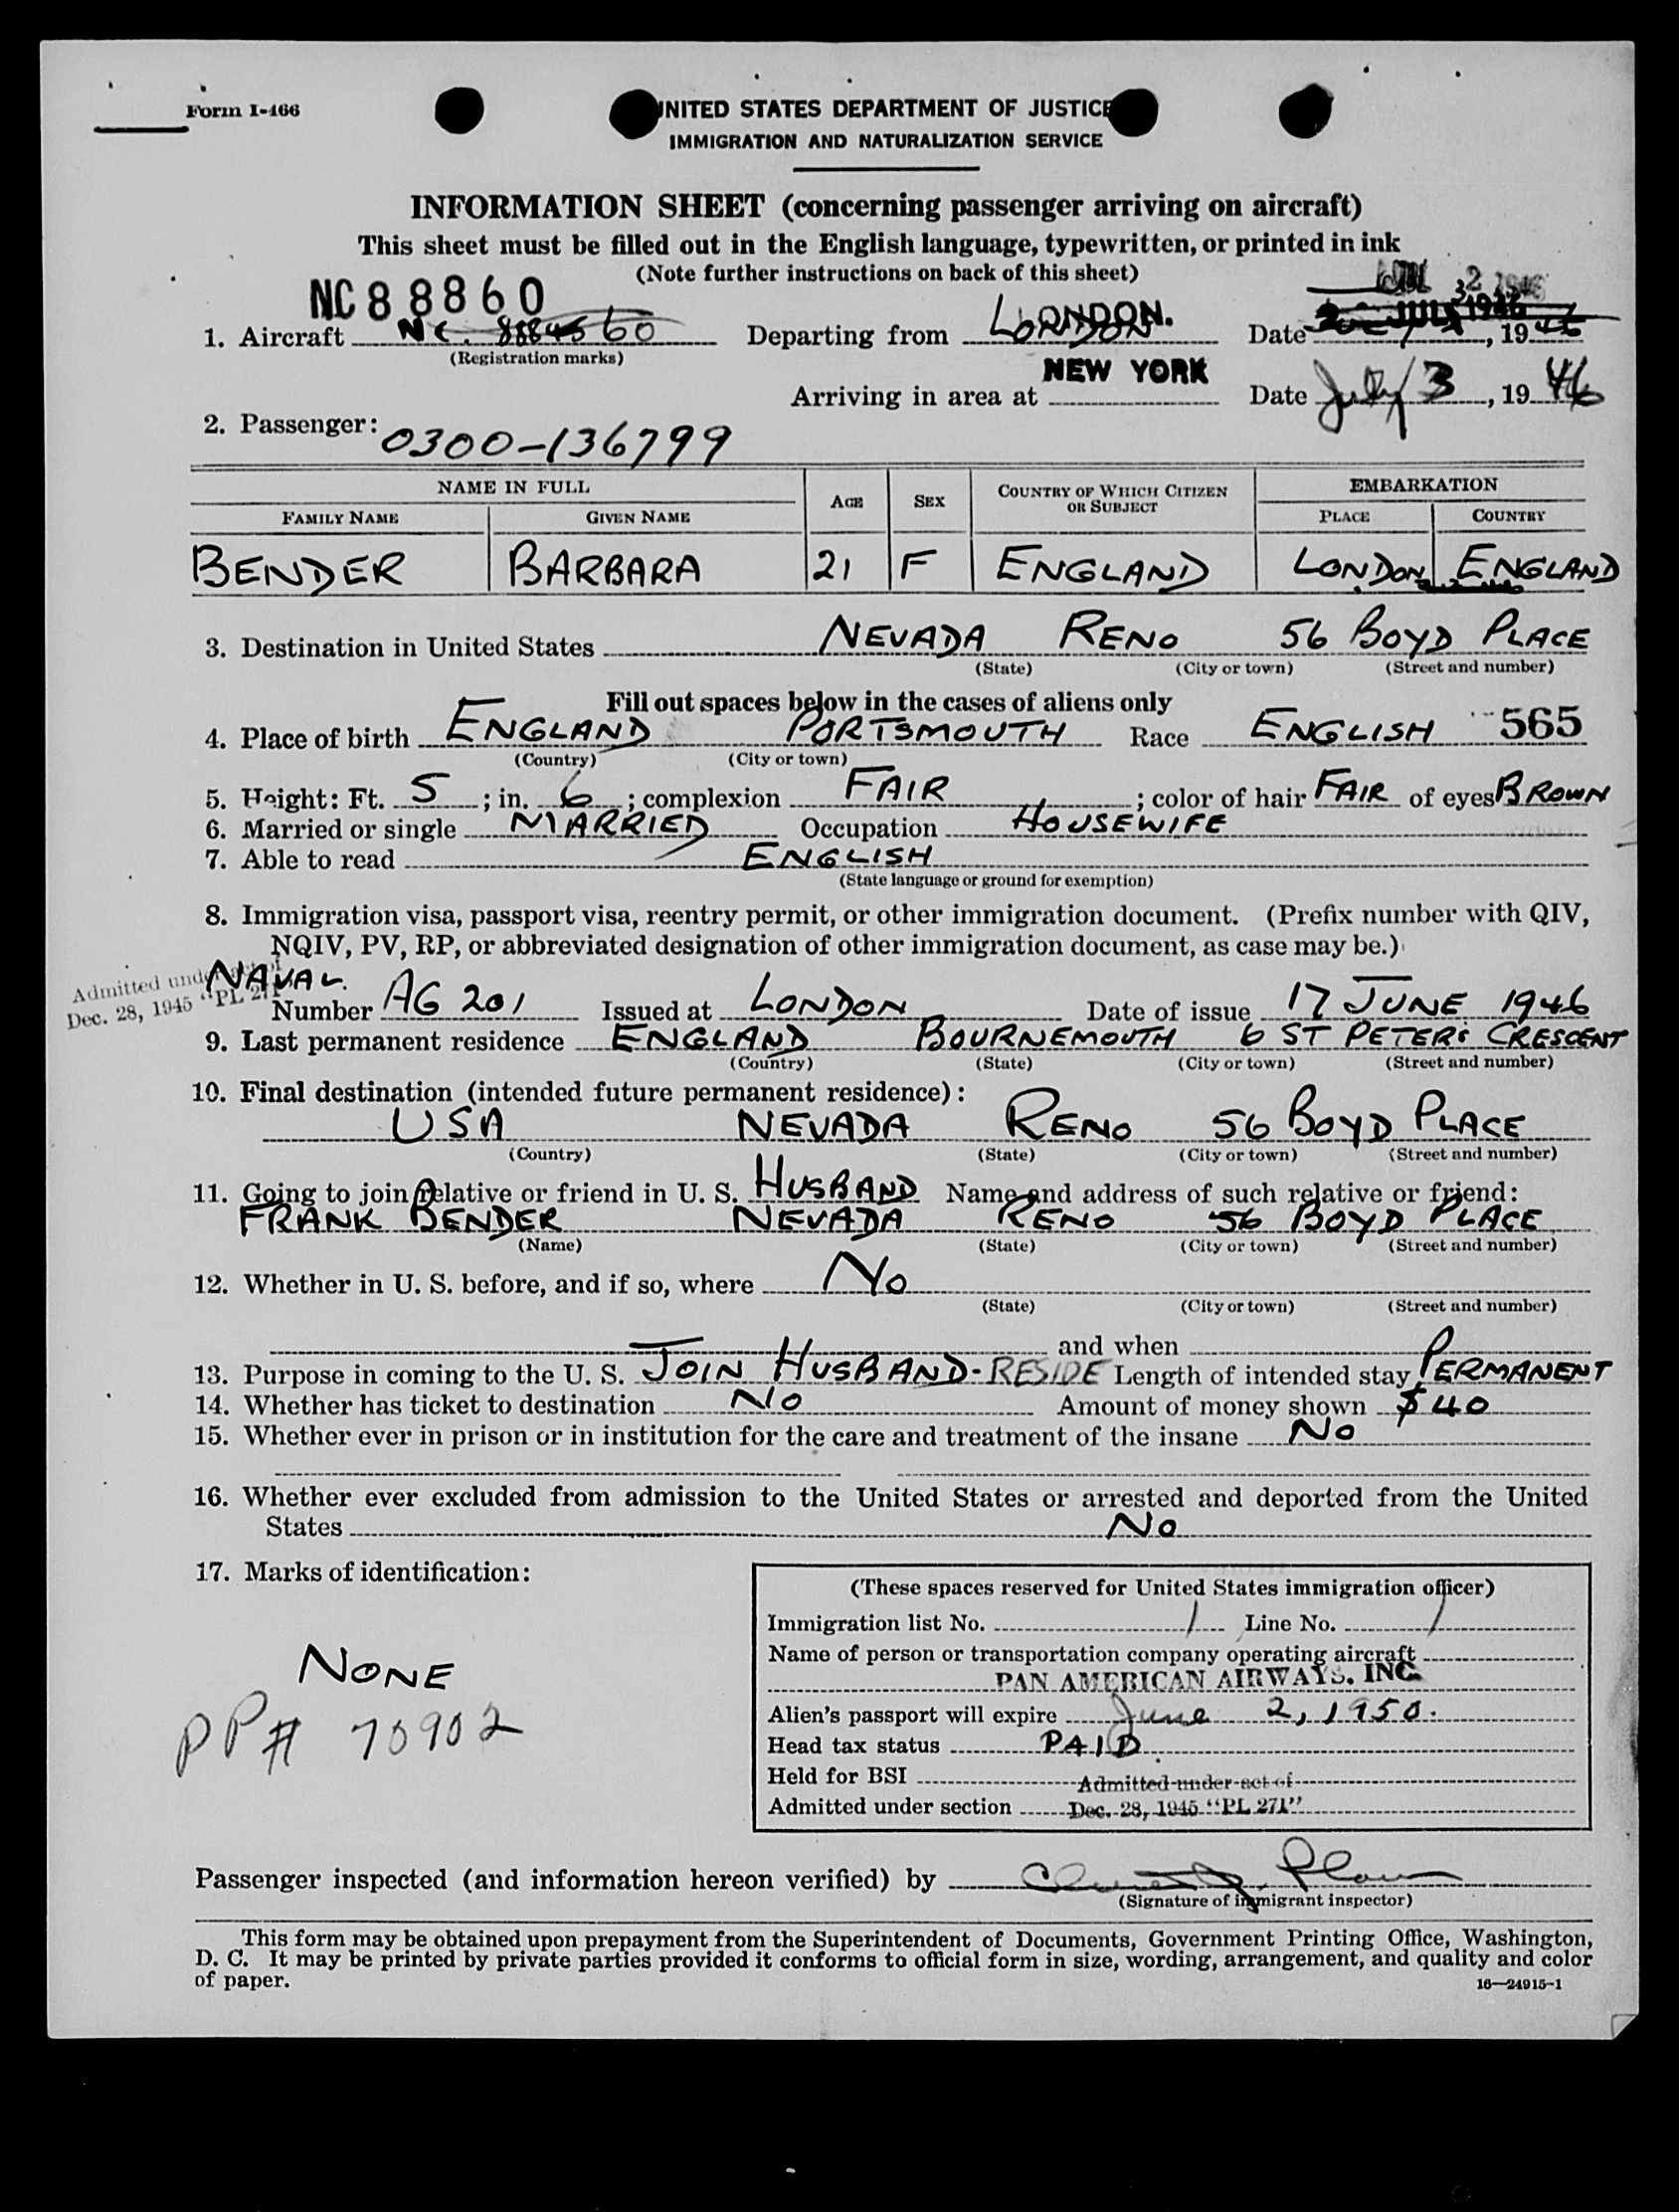 Form I-466
UNITED STATES DEPARTMENT OF JUSTICE
IMMIGRATION AND NATURALIZATION SERVICE
INFORMATION SHEET (concerning passenger arriving on aircraft)
This sheet must be filled out in the English language, typewritten, or printed in ink
(Note further instructions on back of this sheet)
NC 88860
1. Aircraft NC. 60 Departing from LONDON. Date , 1946
(Registration marks)
Arriving in area at NEW YORK Date July 3, 1946
2. Passenger: 0300-136799
NAME IN FULL AGE SEX COUNTRY OF WHICH CITIZEN OR SUBJECT EMBARKATION
FAMILY NAME GIVEN NAME PLACE COUNTRY
BENDER BARBARA 21 F ENGLAND LONDON ENGLAND
3. Destination in United States NEVADA RENO 56 BOYD PLACE
(State) (City or town) (Street and number)
Fill out spaces below in the cases of aliens only
4. Place of birth ENGLAND PORTSMOUTH Race ENGLISH 565
(Country) (City or town)
5. Height: Ft. 5; in. 6; complexion FAIR; color of hair FAIR of eyes BROWN
6. Married or single MARRIED Occupation HOUSEWIFE
7. Able to read ENGLISH
(State language or ground for exemption)
8. Immigration visa, passport visa, reentry permit, or other immigration document. (Prefix number with QIV,
NQIV, PV, RP, or abbreviated designation of other immigration document, as case may be.)
Admitted under act of
Dec. 28, 1945 "PL 271"
NAVAL.
Number AG 201 Issued at LONDON Date of issue 17 JUNE 1946
9. Last permanent residence ENGLAND BOURNEMOUTH 6 ST PETERS CRESCENT
(Country) (State) (City or town) (Street and number)
10. Final destination (intended future permanent residence):
USA NEVADA RENO 56 BOYD PLACE
(Country) (State) (City or town) (Street and number)
11. Going to join relative or friend in U. S. HUSBAND Name and address of such relative or friend:
FRANK BENDER NEVADA RENO 56 BOYD PLACE
(Name) (State) (City or town) (Street and number)
12. Whether in U. S. before, and if so, where NO
(State) (City or town) (Street and number)
and when
13. Purpose in coming to the U. S. JOIN HUSBAND-RESIDE Length of intended stay PERMANENT
14. Whether has ticket to destination NO Amount of money shown $40
15. Whether ever in prison or in institution for the care and treatment of the insane NO
16. Whether ever excluded from admission to the United States or arrested and deported from the United
States NO
17. Marks of identification:
NONE
PP# 70902
(These spaces reserved for United States immigration officer)
Immigration list No. 1 Line No. 1
Name of person or transportation company operating aircraft
PAN AMERICAN AIRWAYS, INC.
Alien's passport will expire June 2, 1950.
Head tax status PAID
Held for BSI Admitted under act of
Admitted under section Dec. 28, 1945 "PL 271"
Passenger inspected (and information hereon verified) by
(Signature of immigrant inspector)
This form may be obtained upon prepayment from the Superintendent of Documents, Government Printing Office, Washington,
D. C. It may be printed by private parties provided it conforms to official form in size, wording, arrangement, and quality and color
of paper.
16—24915-1